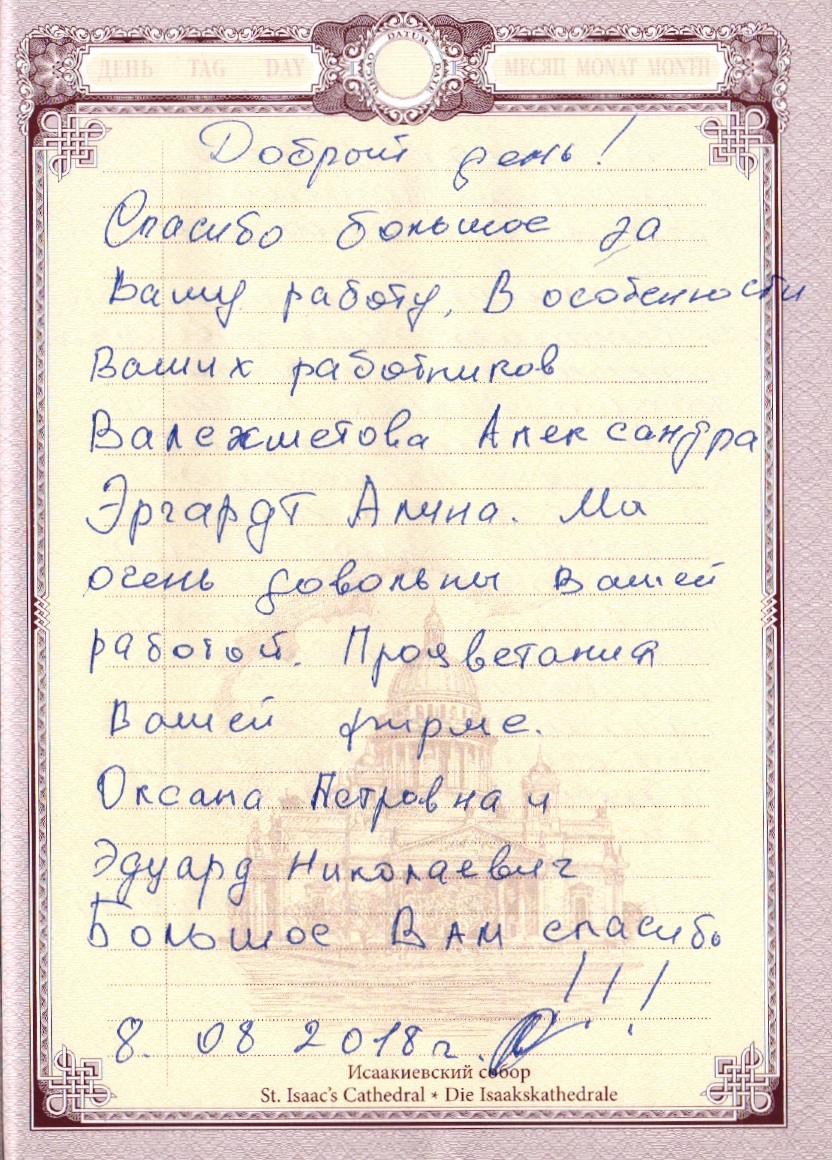 ДЕНЬ TAG DAY
DATUM
МЕСЯЦ MONAT MONTH
Добрый день!
Спасибо большое за
Вашу работу, В особенности
Ваших работников
Валехметова Александра
Эргардт Алина. Мы
очень довольны вашей
работой. Процветания
Вашей фирме.
Оксана Петровна и
Эдуард Николаевич
Большое Вам спасибо
!!!
8. 08 2018 г.
Исаакиевский собор
St. Isaac's Cathedral * Die Isaakskathedrale